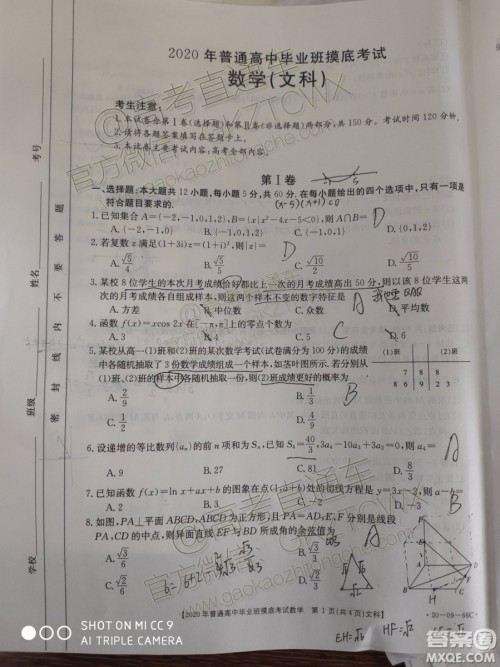 2020年普通高中毕业班摸底考试
数学(文科)
考生注意:
1.本试卷分第Ⅰ卷(选择题)和第Ⅱ卷(非选择题)两部分,共150分。考试时间120分钟。
2.请将各题答案填写在答题卡上。
3.本试卷主要考试内容:高考全部内容。
第Ⅰ卷
一、选择题:本大题共12小题,每小题5分,共60分.在每小题给出的四个选项中,只有一项是
符合题目要求的.
(x-5)(x+1)<0
1.已知集合A={-2,-1,0,1,2},B={x|x²-4x-5<0},则A∩B= D
A.{-2,-1,0} B.{-1,0,1,2} C.{-1,0,1} D.{0,1,2}
2.若复数z满足(1+3i)z=(1+i)²,则|z|= D
A.√5/4 B.√5/5 C.√10/2 D.√10/5
3.某校8位学生的本次月考成绩恰好都比上一次的月考成绩高出50分,则以该8位学生这两
次的月考成绩各自组成样本,则这两个样本不变的数字特征是 A
A.方差 B.中位数 C.众数 D.平均数
4.函数f(x)=xcos2x在[-π,π]上的零点个数为
A.3 B.4 C.5 D.6
5.某校从高一(1)班和(2)班的某次数学考试(试卷满分为100分)的成绩
中各随机抽取了3份数学成绩组成一个样本,如茎叶图所示.若分别从
(1)班、(2)班的样本中各随机抽取一份,则(2)班成绩更好的概率为
(1)班 (2)班
7 8 8
8 6 9 2 3
A.2/9 B.1/3
C.1/2 D.4/9
B
6.设递增的等比数列{aₙ}的前n项和为Sₙ,已知S₄=40/3,3a₄-10a₃+3a₂=0,则a₄= A
A.9 B.27 C.81 D.8/3
7.已知函数f(x)=lnx+ax+b的图象在点(1,a+b)处的切线方程是y=3x-2,则a-b= B
A.2 B.3 C.-2 D.-3
8.如图,PA⊥平面ABCD,ABCD为正方形,且PA=AD,E,F分别是线段
PA,CD的中点,则异面直线EF与BD所成角的余弦值为 A
A.√3/6 B.√3/3
C.√2/6 D.√2/3
P
E
A
B
C
D
F
H
EH=√2 HF=√2
【2020年普通高中毕业班摸底考试数学 第1页(共4页)文科】
·20-09-86C·
考号
姓名
班级
学校
密封线内不要答题
高考直通车
官方微信
GKZTCWX
www.gaokaozhitongche.com
SHOT ON MI CC 9
AI TRIPLE CAMERA
答案圈